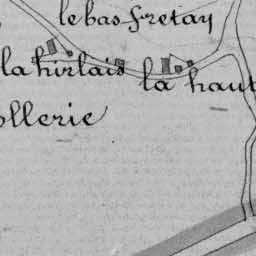 le bas Fretay
la hirlais
la haut
ollerie